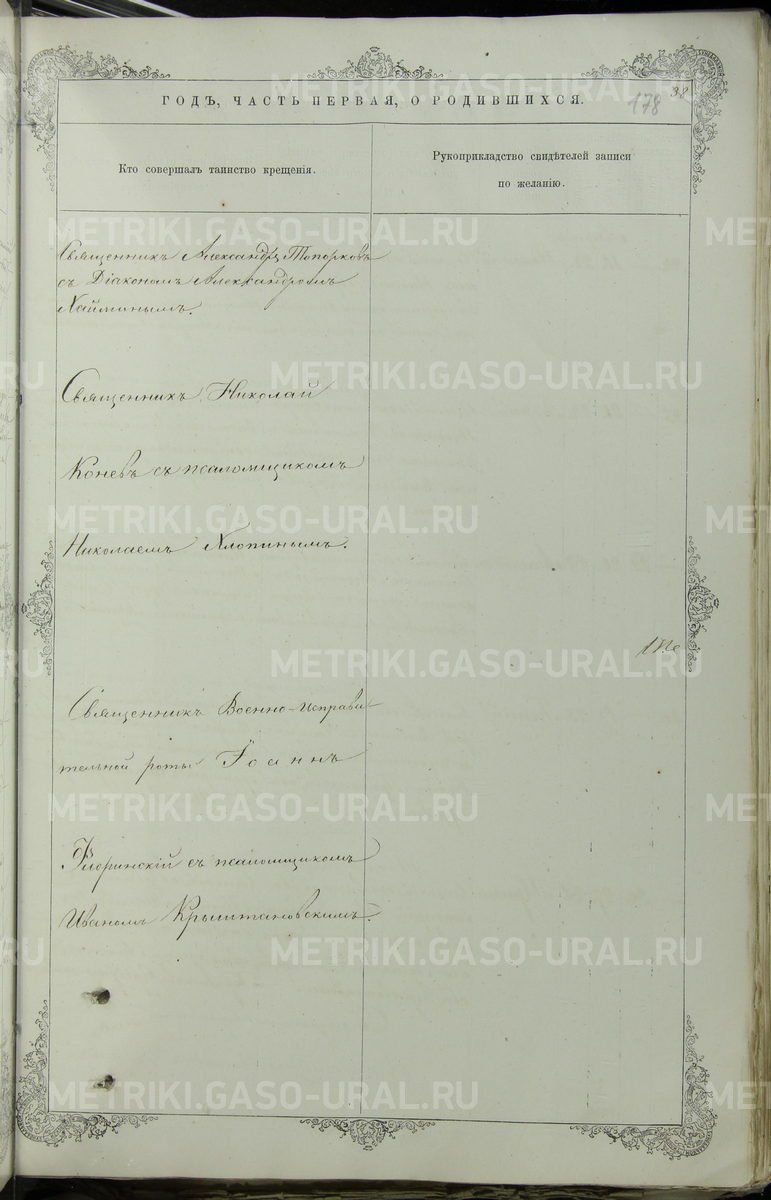 ГОДЪ, ЧАСТЬ ПЕРВАЯ, О РОДИВШИХСЯ.
178
38
Кто совершалъ таинство крещенія.
Рукоприкладство свидѣтелей записи
по желанію.
Священникъ Александръ Топорковъ
съ Діакономъ Александромъ
Хайминымъ.
Священникъ Николай
Коневъ съ псаломщикомъ
Николаемъ Хлопинымъ.
Священникъ Военно-исправи-
тельной роты Іоаннъ
Флоринскій съ псаломщикомъ
Иваномъ Крыштановскимъ.
METRIKI.GASO-URAL.RU